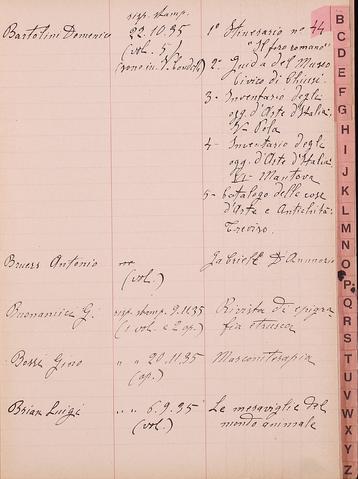 Bartolini Domenico
risp. stamp.
22.10.35
(vol. 5)
1° Itinerario n° 44
"Il foro romano"
2° Guida del Museo
Civico di Chiusi.
3 - Inventario degli
ogg. d'Arte d'Italia
V - Pola
4 - Inventario degli
ogg. d'Arte d'Italia
VI - Mantova
5 - Catalogo delle cose
d'Arte e Antichità:
Treviso.
Bruers Antonio
(vol.)
Gabriele D'Annunzio
Buonamici G.
risp. stamp. 9.11.35
(1 vol. e 2 op.)
Rivista di epigra
fia etrusca
Bossi Gino
" " 20.11.35
(op.)
Marconiterapia
Brian Luigi
" " 6.9.35
(vol.)
Le meraviglie del
mondo animale
B
C
D
E
F
G
H
I
J
K
L
M
N
O
P
Q
R
S
T
U
V
W
X
Y
Z